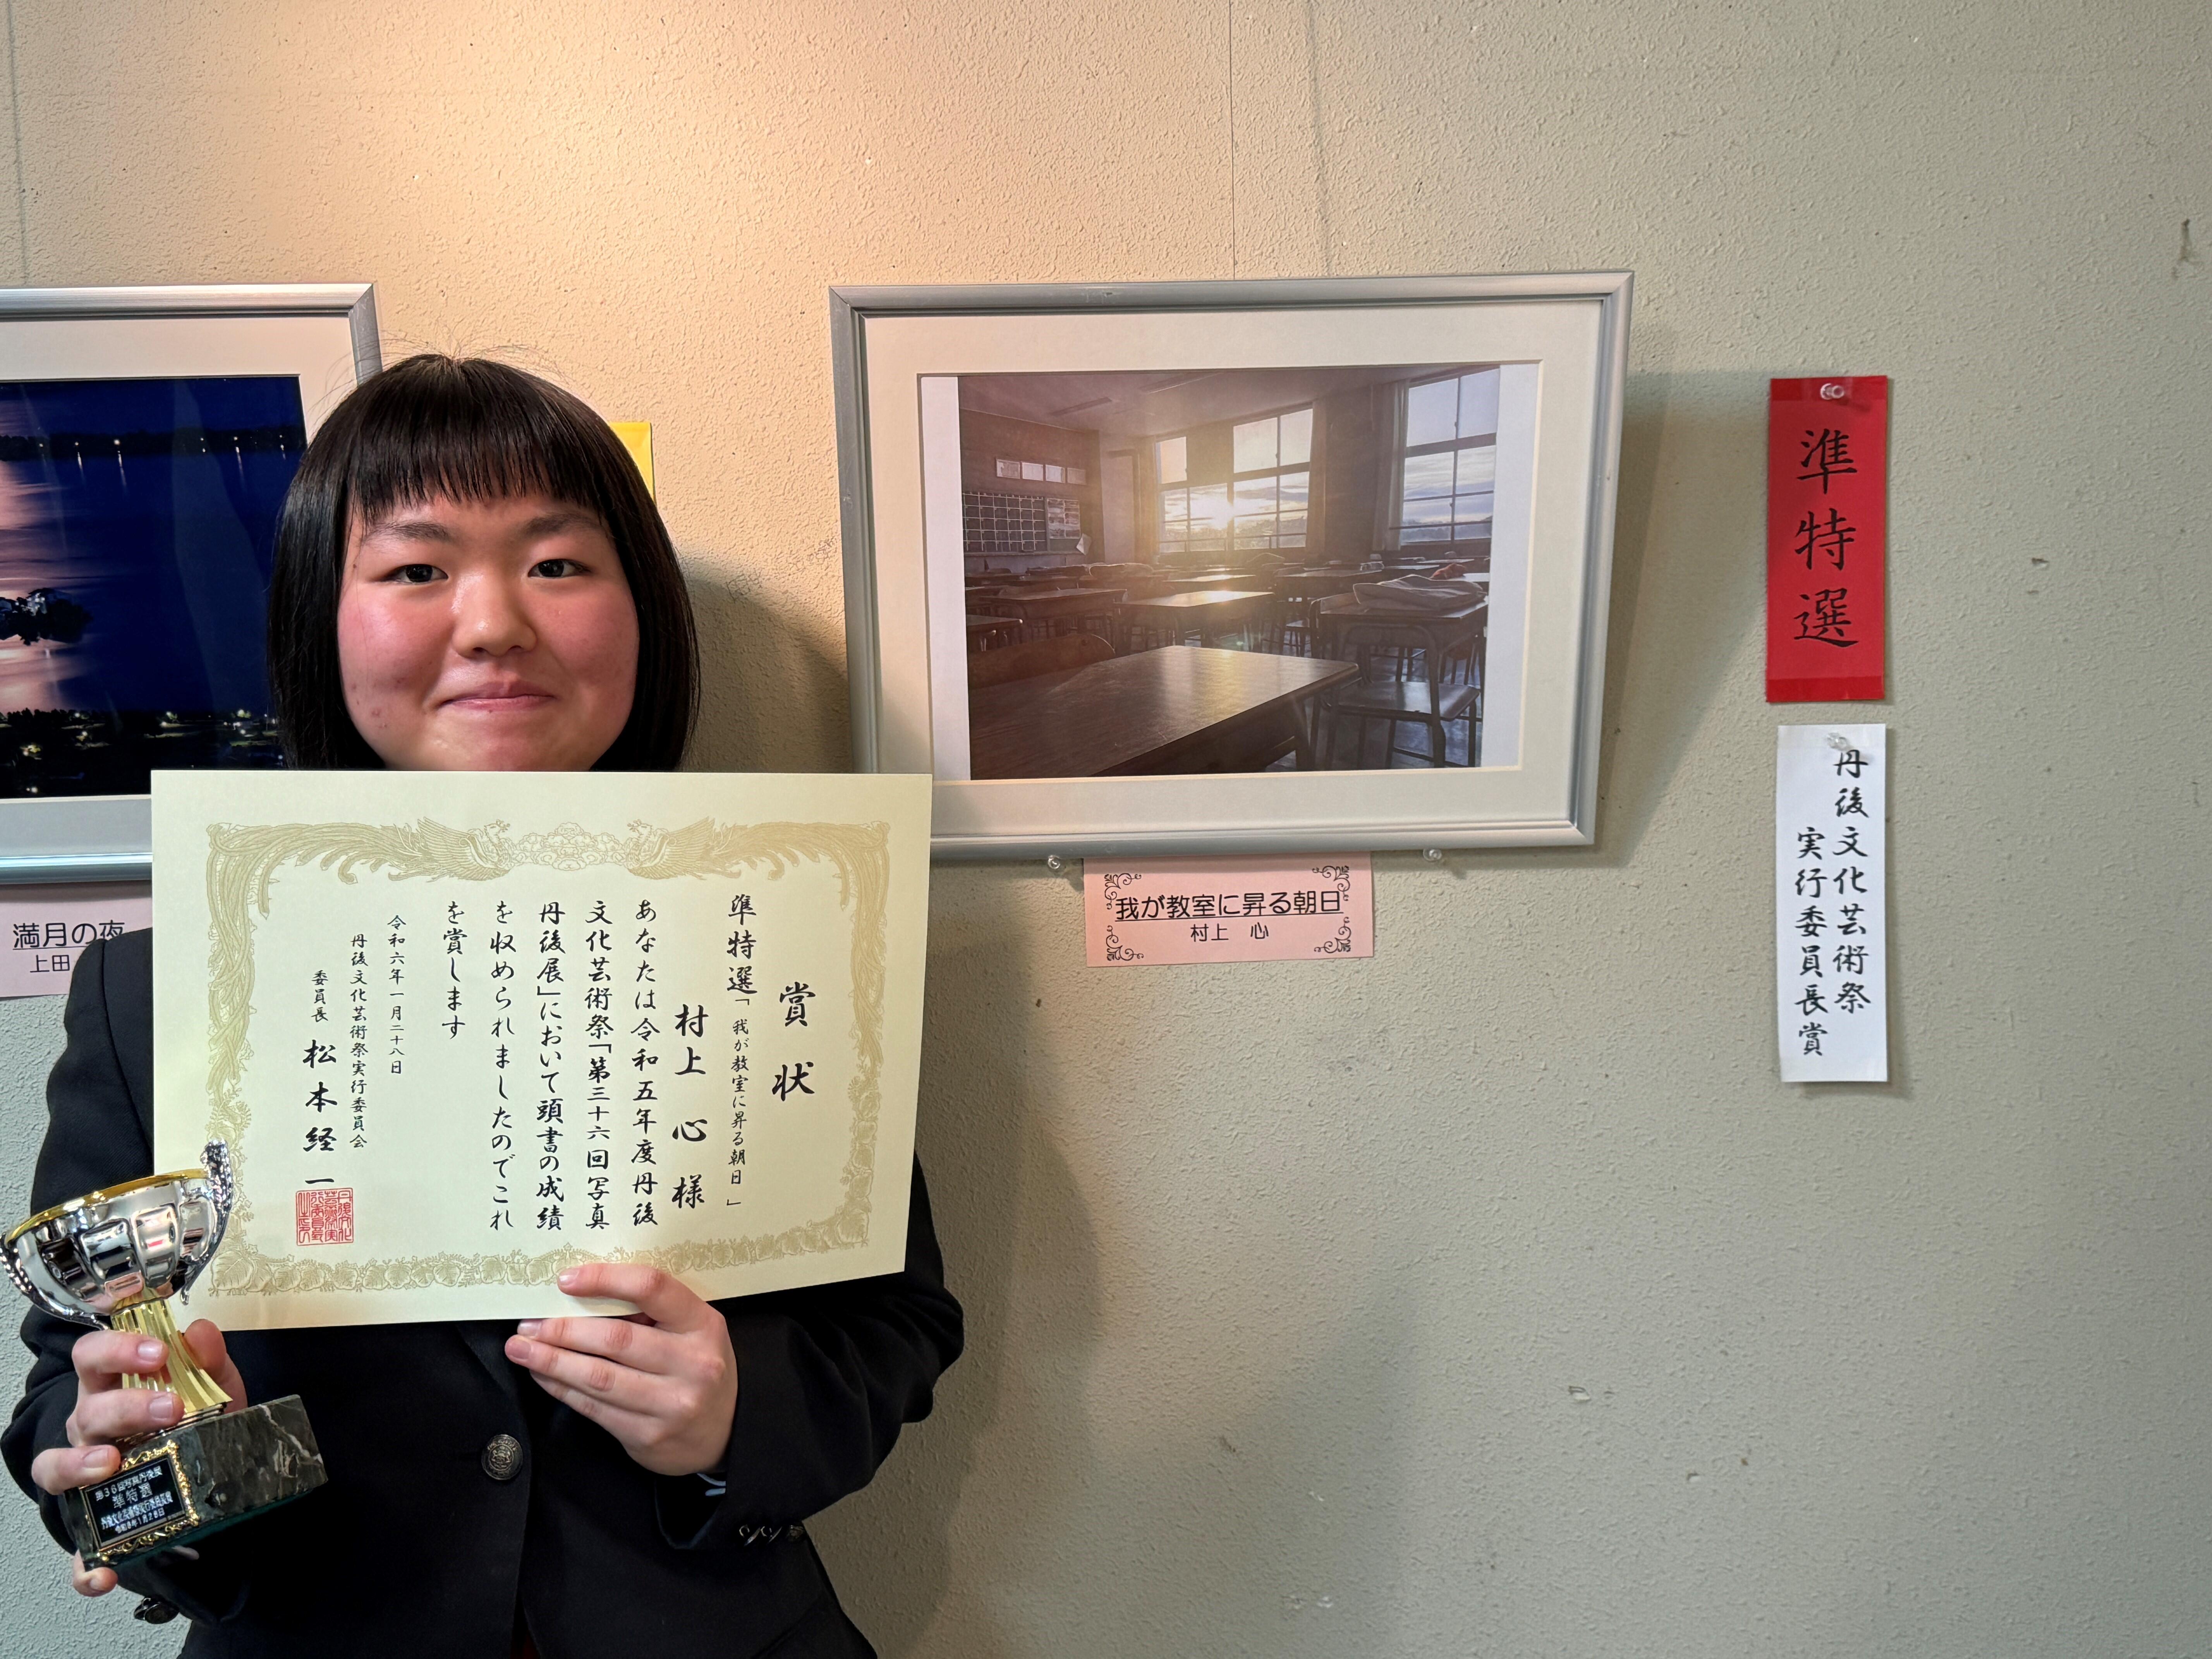 賞状
準特選「我が教室に昇る朝日」
村上 心 様
あなたは令和五年度丹後
文化芸術祭「第三十六回写真
丹後展」において頭書の成績
を収められましたのでこれ
を賞します
令和六年一月二十八日
丹後文化芸術祭実行委員会
委員長 松本経一
第36回写真丹後展
準特選
丹後文化芸術祭実行委員長賞
令和6年1月28日
満月の夜
上田
我が教室に昇る朝日
村上 心
準特選
丹後文化芸術祭
実行委員長賞